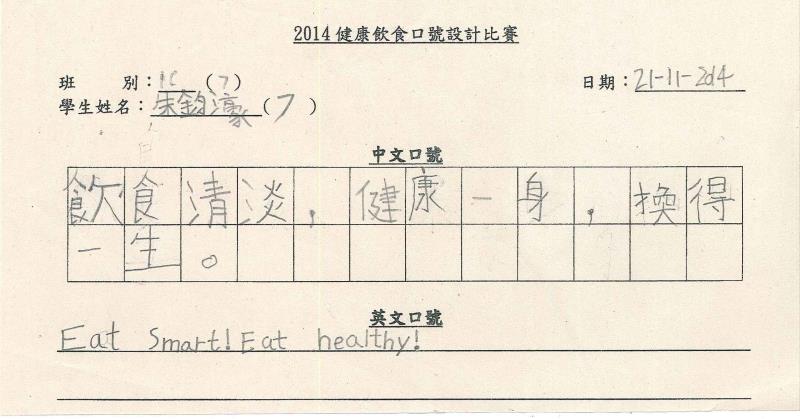 2014健康飲食口號設計比賽
班　別：1C (7)
日期：21-11-2014
學生姓名：朱鈞濠(7)
中文口號
飲食清淡，健康一身，換得
一生。
英文口號
Eat Smart! Eat healthy!